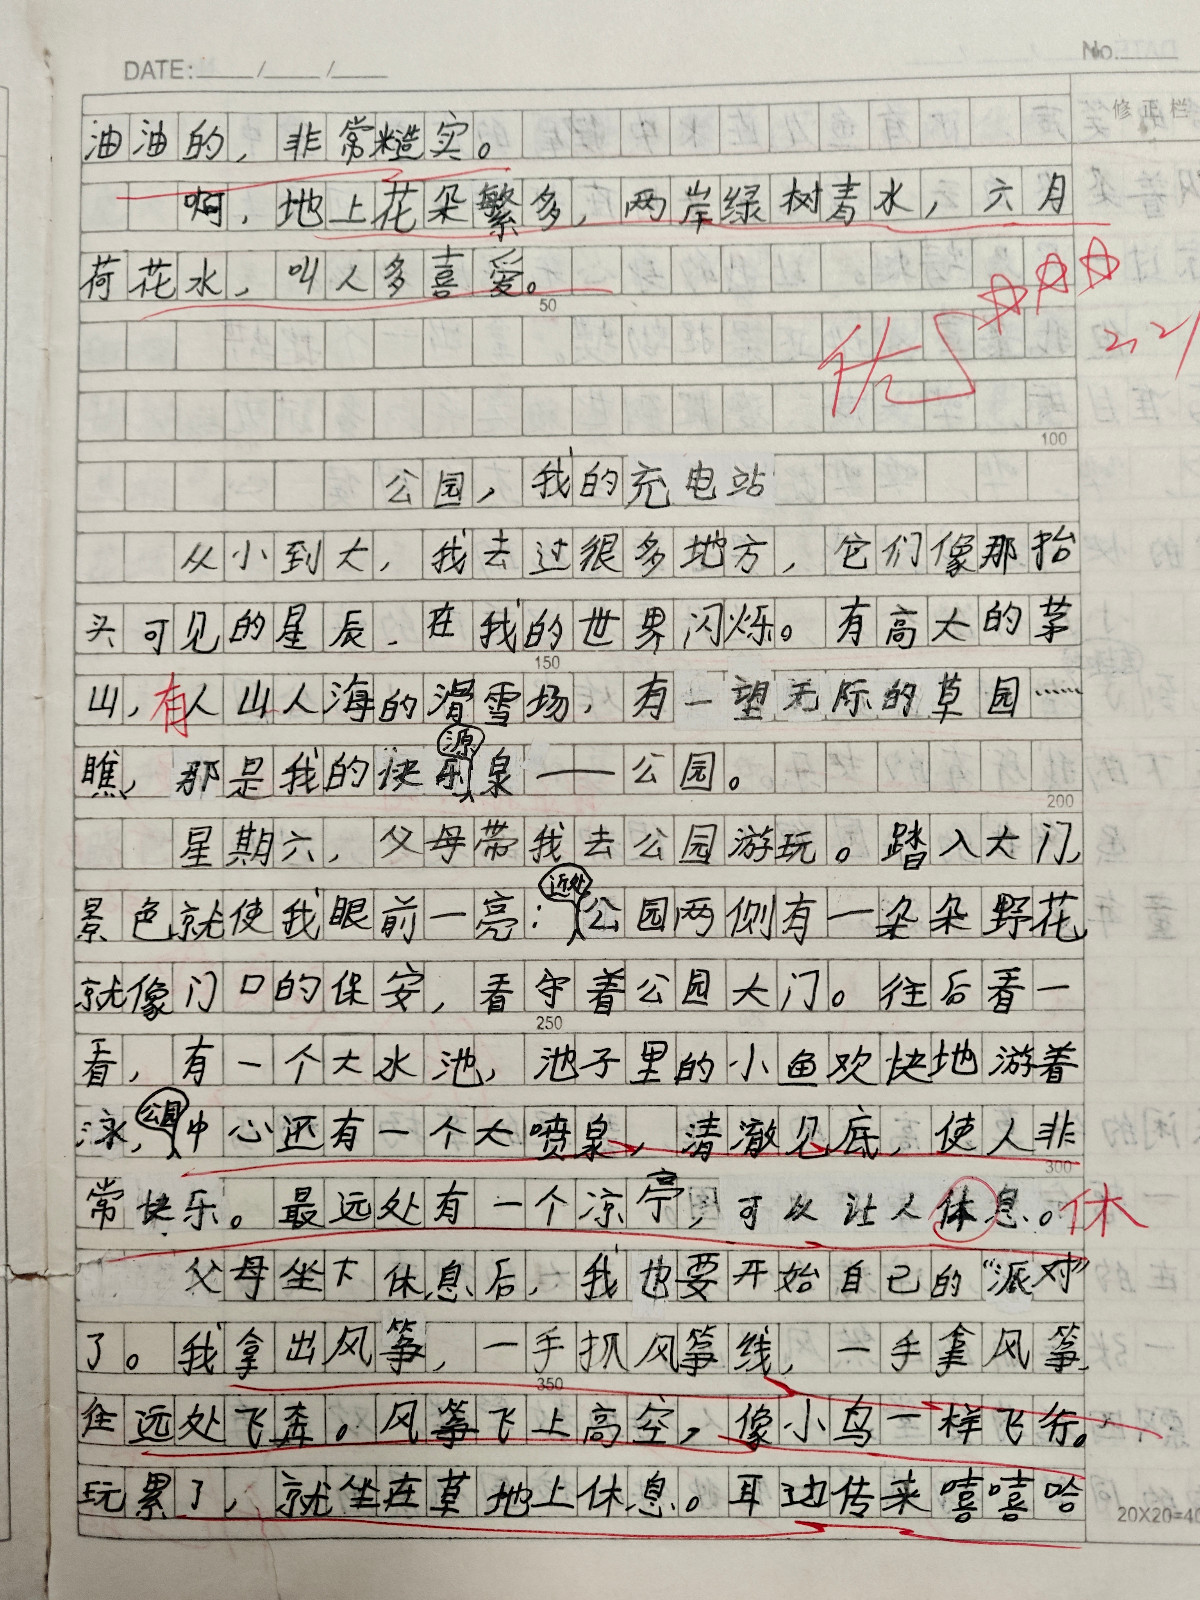 DATE: ___/___/___
No.
修正栏
油油的，非常糙实。
啊，地上花朵繁多，两岸绿树青水，六月
荷花水，叫人多喜爱。
50
优
2.21
100
公园，我的充电站
从小到大，我去过很多地方，它们像那抬
头可见的星辰，在我的世界闪烁。有高大的茅
150
山，有人山人海的滑雪场，有一望无际的草园……
瞧，那是我的快乐源泉——公园。
200
星期六，父母带我去公园游玩。踏入大门，
景色就使我眼前一亮：近处公园两侧有一朵朵野花
就像门口的保安，看守着公园大门。往后看一
250
看，有一个大水池，池子里的小鱼欢快地游着
泳，公园中心还有一个大喷泉，清澈见底，使人非
300
常快乐。最远处有一个凉亭，可以让人休息。休
父母坐下休息后，我也要开始自己的“派对”
了。我拿出风筝，一手抓风筝线，一手拿风筝，
350
往远处飞奔。风筝飞上高空，像小鸟一样飞行。
玩累了，就坐在草地上休息。耳边传来嘻嘻哈
20X20=40